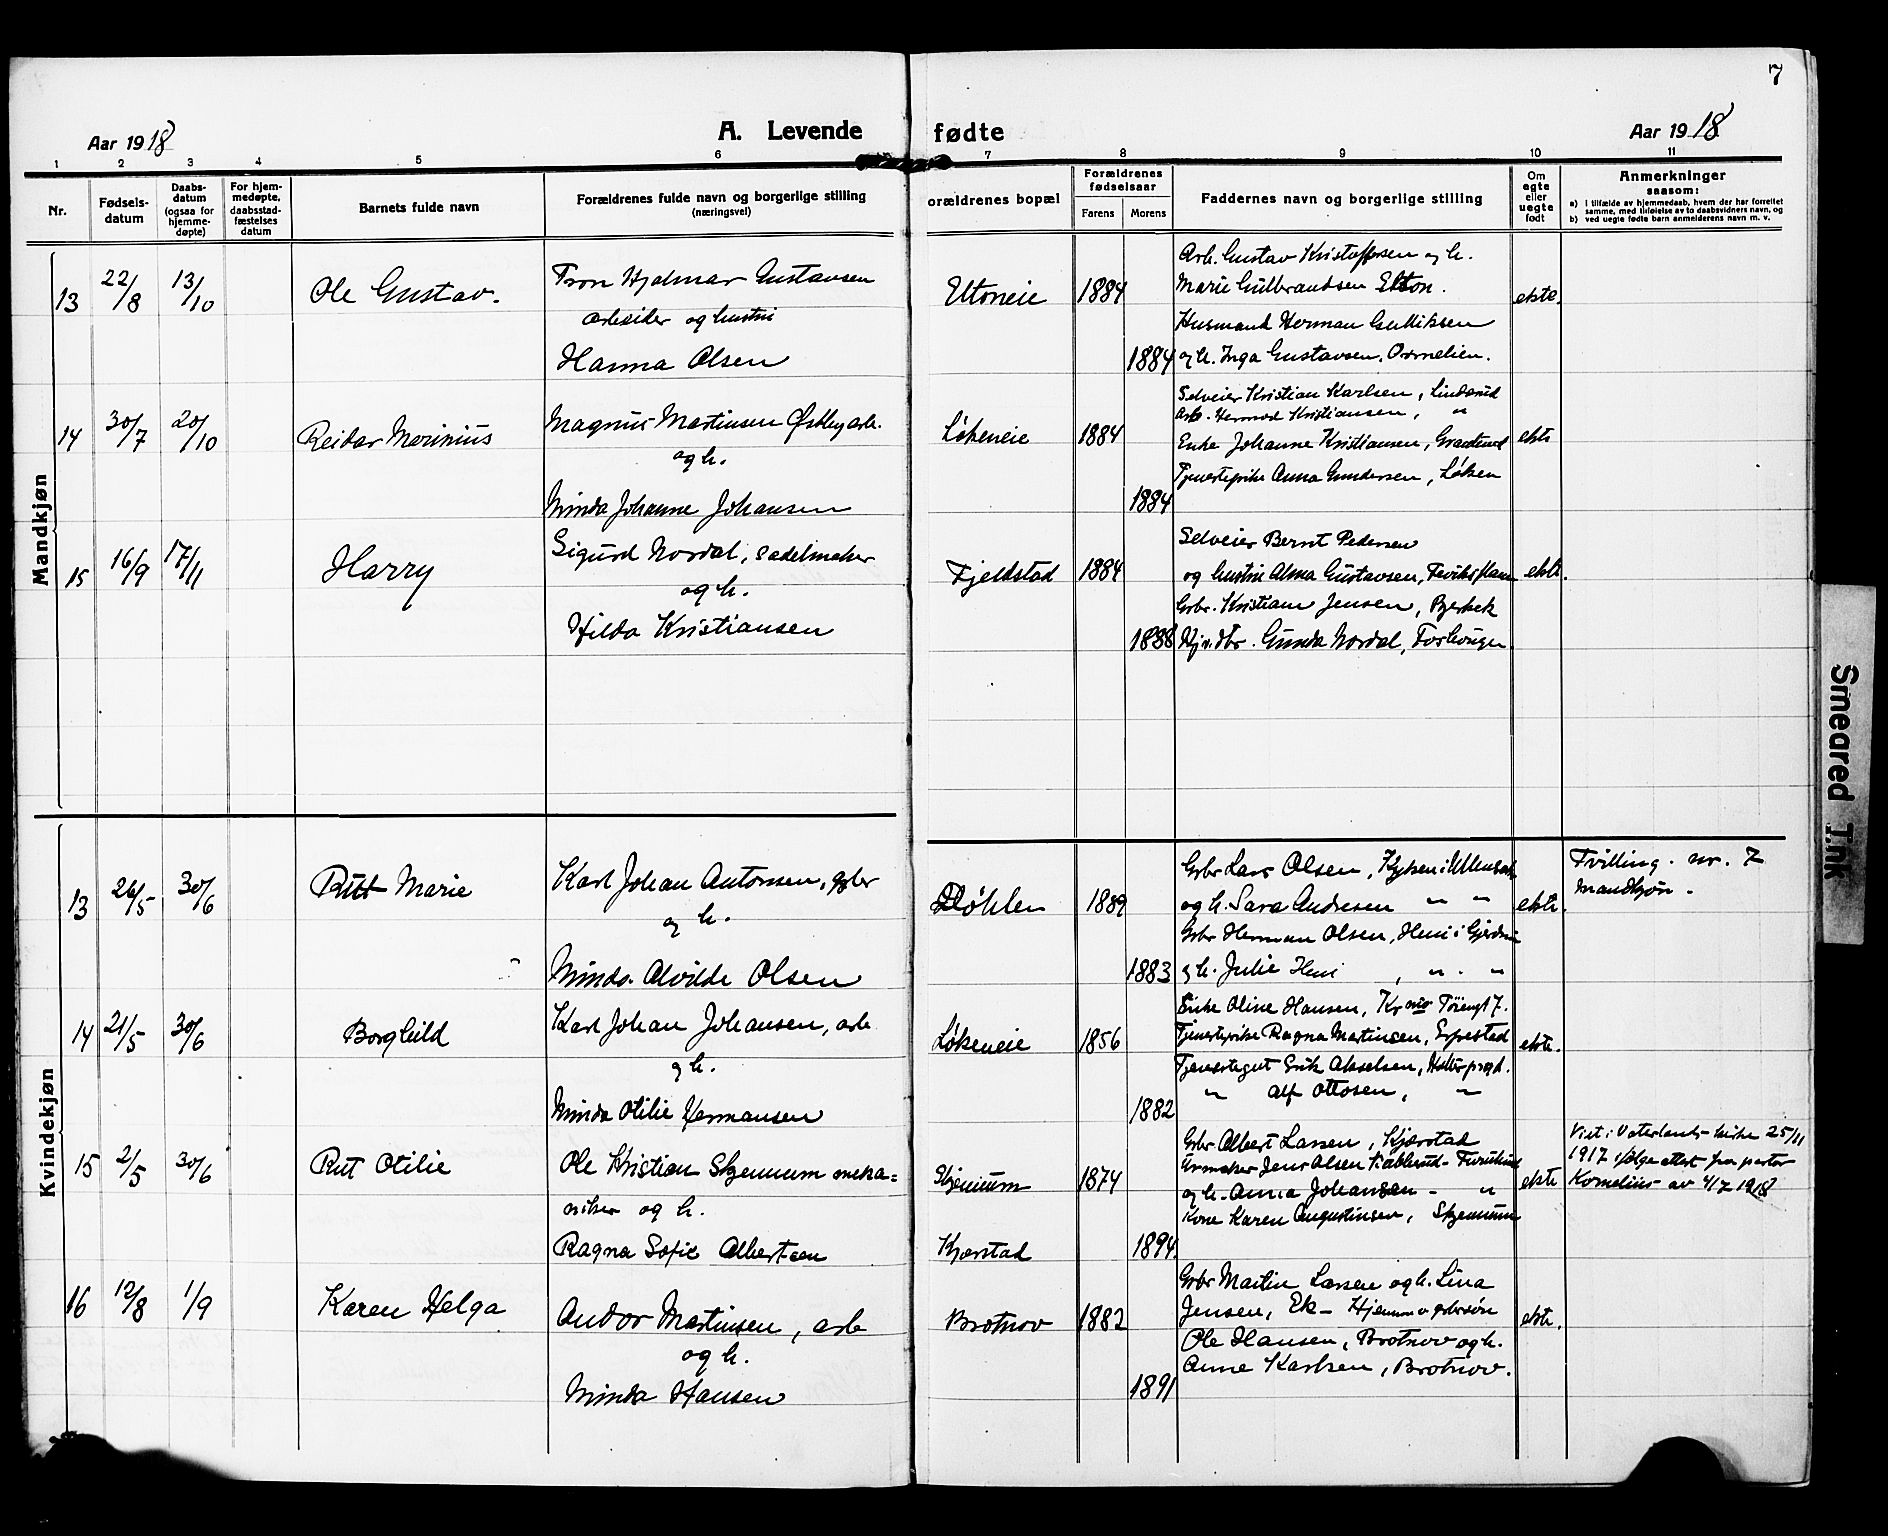 7
Aar 1918
A. Levende fødte
Aar 1918
1 2 3 4 5 6 7 8 9 10 11
Nr.
Fødsels-
datum
Daabs-
datum
(ogsaa for
hjemme-
døpte)
For hjem-
medøpte,
daabsstad-
fæstelses
datum
Barnets fulde navn
Forældrenes fulde navn og borgerlige stilling
(næringsvei)
orældrenes bopæl
Forældrenes
fødselsaar
Farens Morens
Faddernes navn og borgerlige stilling
Om
egte
eller
uegte
født
Anmerkninger
saasom:
a) i tilfælde av hjemmedaab, hvem der har forrettet
samme, med tilføielse av to daabsvidners navn, og
b) ved uegte fødte børn anmelderens navn m. v.
Mandkjøn
13 22/8 13/10 Ole Gustav.
Tron Hjalmar Gustavsen
arbeider og hustru
Hanna Olsen
Eltoneie 1884
1884
Arb. Gustav Kristoffersen og h.
Marie Gulbrandsen Elton.
Husmand Herman Gulliksen
og h. Inga Gustavsen,
ekte.
14 30/7 20/10 Reidar Marinius
Magnus Martinsen Østby arb.
og h.
Minda Johanne Johansen
Løkeneie 1884
1884
Selveier Kristian Karlsen, Linderud
Arb. Hermod Kristiansen, "
Enke Johanne Kristiansen,
Tjenestepike Anna Gundersen, Løken
ekte
15 16/9 17/11 Harry
Sigurd Nordal, sadelmaker
og h.
Hilda Kristiansen
Fjeldstad 1884
1888
Selveier Bernt Pedersen
og hustru Alma Gustavsen,
Grbr. Kristian Jensen, Bjerkek
Gunda Nordal,
ekte.
Kvindekjøn
13 26/5 30/6 Rutt Marie
Karl Johan Antonsen, gbr
og h.
Minda Alvilde Olsen
Døhlen 1889
1883
Grbr Lars Olsen, Ullensak
og h. Sara Andresen " "
Grbr Herman Olsen, Heni i Gjerdru
og h. Julie Heni , " . "
ekte.
Tvilling. nr. 7
mandkjøn.
14 21/5 30/6 Borghild
Karl Johan Johansen, arb
og h.
Minda Otilie Hermansen
Løkeneie 1856
1882
Enke Oline Hansen,
Tjenestepike Ragna Martinsen,
Tjenestegut Erik Akselsen,
" Alf Ottosen, "
ekte.
15 2/5 30/6 Rut Otilie
Ole Kristian Skjennum meka=
niker og h.
Ragna Sofie Albertsen
Skjennum 1874
Kjærstad 1894
Grbr Albert Larsen, Kjærstad
Urmaker Jens Olsen
og h. Anna Johansen - "
Kone Karen Augustinsen, Skjennum
ekte
Viet i Vaterlands kirke 25/11
1917 ifølge attest fra pastor
Kornelius av 4/7 1918
16 12/8 1/9 Karen Helga
Andor Martinsen, arb
og h.
Minda Hansen
Brotnov 1882
1891
Grbr Martin Larsen og h. Lina
Jensen, Ek -
Ole Hansen, Brotnov og h.
Anne Karlsen, Brotnov.
ekte.
Smeared Ink